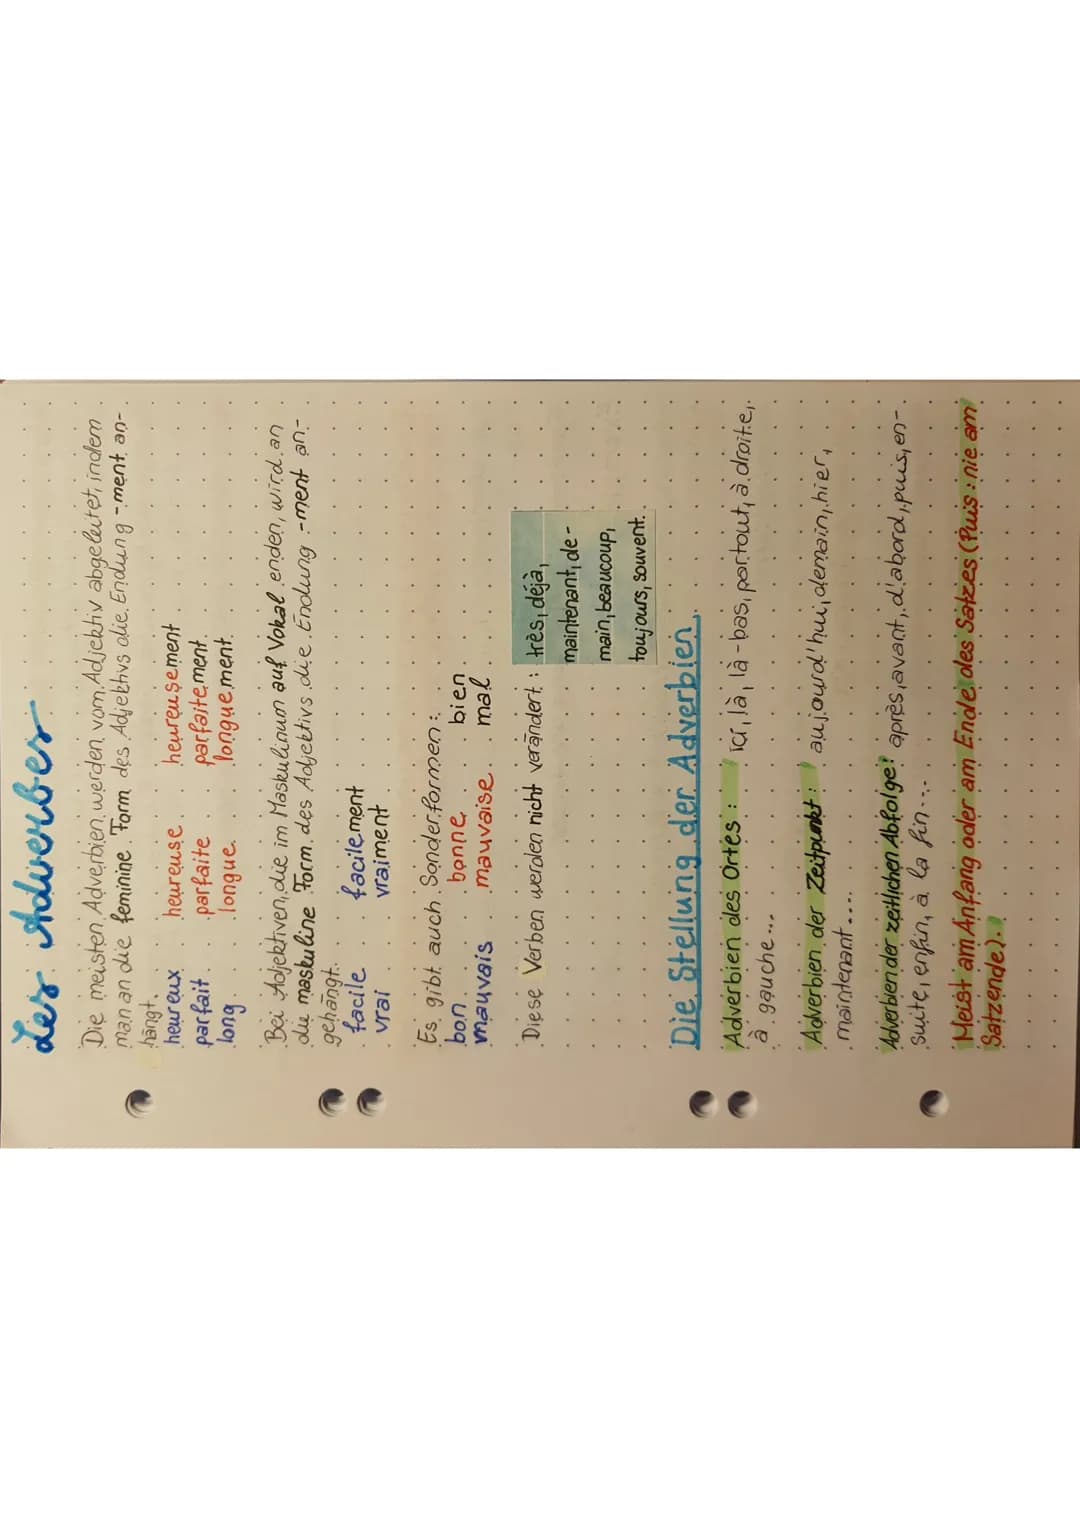 Les Adverbes
Die meisten Adverbien werden vom Adjektiv abgeleitet, indem
man an die feminine Form des Adjektivs die Endung -ment an-
hängt.
heureux heureuse heureusement
parfait parfaite parfaitement
long longue longuement
Bei Adjektiven, die im Maskulinum auf Vokal enden, wird an
die maskuline Form des Adjektivs die Endung -ment an-
gehängt.
facile facilement
vrai vraiment
Es gibt auch Sonderformen:
bon bonne bien
mauvais mauvaise mal
Diese Verben werden nicht verändert: très, déjà,
maintenant, de-
main, beaucoup,
toujours, souvent.
Die Stellung der Adverbien
Adverbien des Ortes: ici, là, là-bas, partout, à droite,
à gauche...
Adverbien der Zeitpunkt: aujourd'hui, demain, hier,
maintenant....
Adverbien der zeitlichen Abfolge: après, avant, d'abord, puis, en-
suite, enfin, à la fin...
Meist am Anfang oder am Ende des Satzes (Puis: nie am
Satzende).